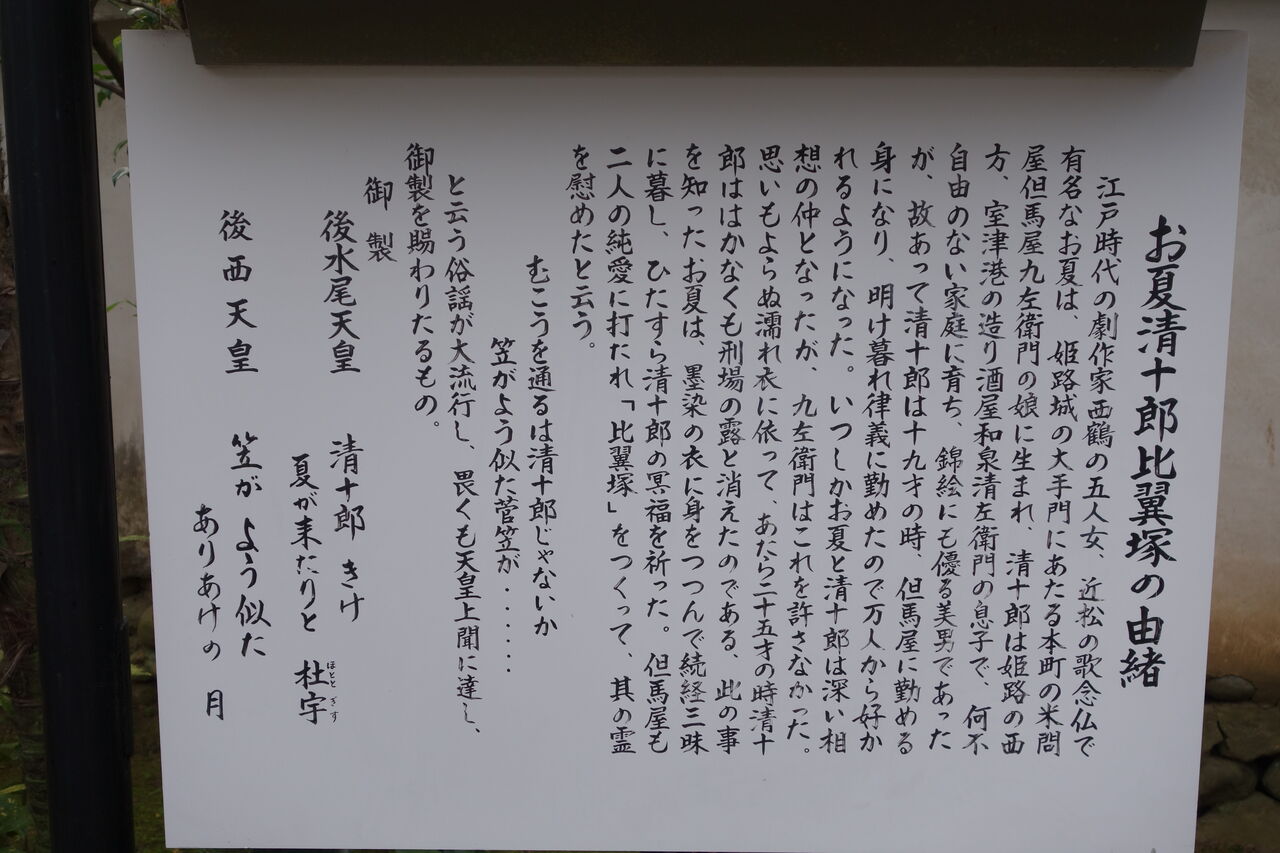 お夏清十郎比翼塚の由緒
江戸時代の劇作家西鶴の五人女、近松の歌念仏で
有名なお夏は、姫路城の大手門にあたる本町の米問
屋但馬屋九左衛門の娘に生まれ、清十郎は姫路の西
方、室津港の造り酒屋和泉清左衛門の息子で、何不
自由のない家庭に育ち、錦絵にも優る美男であった
が、故あって清十郎は十九才の時、但馬屋に勤める
身になり、明け暮れ律義に勤めたので万人から好か
れるようになった。いつしかお夏と清十郎は深い相
想の仲となったが、九左衛門はこれを許さなかった。
思いもよらぬ濡れ衣に依って、あたら二十五才の時清十
郎ははかなくも刑場の露と消えたのである、此の事
を知ったお夏は、墨染の衣に身をつつんで続経三昧
に暮し、ひたすら清十郎の冥福を祈った。但馬屋も
二人の純愛に打たれ「比翼塚」をつくって、其の霊
を慰めたと云う。
むこうを通るは清十郎じゃないか
笠がよう似た菅笠が・・・・・・
と云う俗謡が大流行し、畏くも天皇上聞に達し、
御製を賜わりたるもの。
御製
後水尾天皇 清十郎 きけ
夏が来たりと 杜宇 ほととぎす
後西天皇 笠が よう似た
ありあけの 月